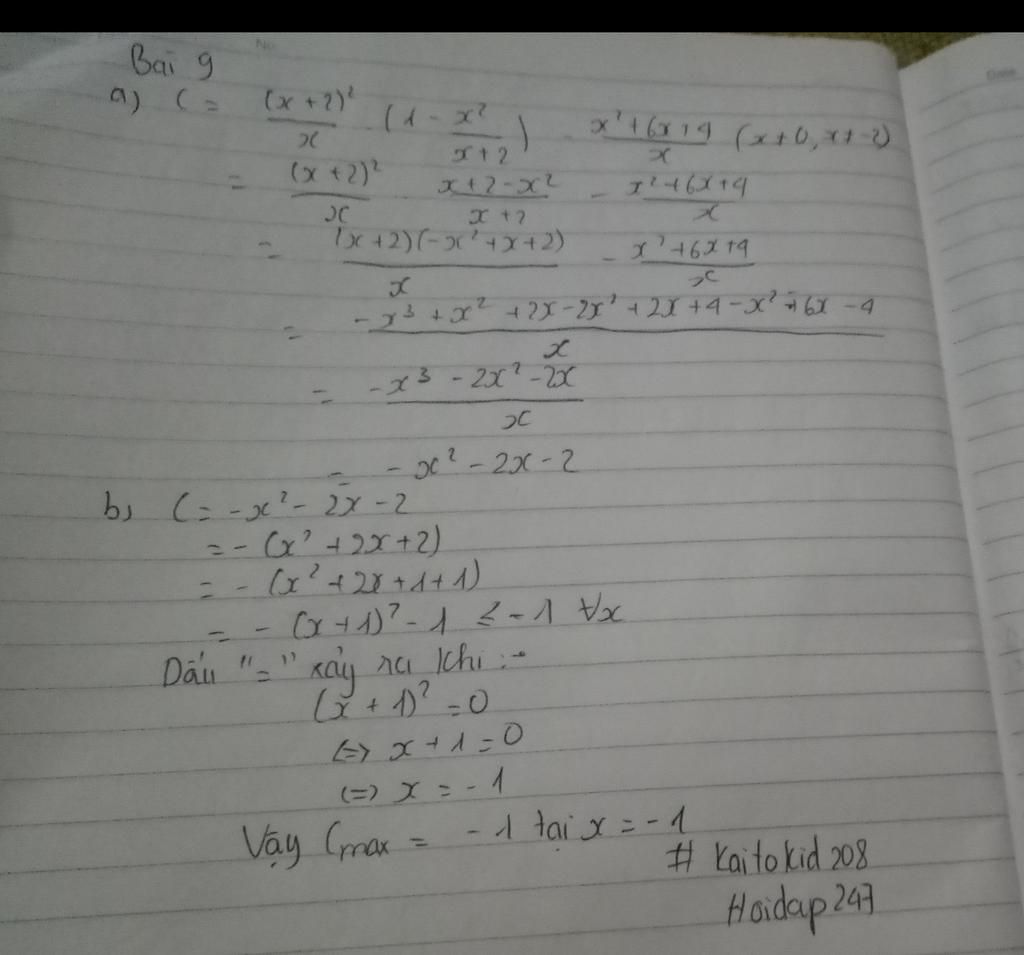 Bài 9
a) C = (x+2)²/x · (1 - x²/(x+2)) - (x²+6x+4)/x (x≠0, x≠-2)
= (x+2)²/x · (x+2-x²)/(x+2) - (x²+6x+4)/x
= (x+2)(-x²+x+2)/x - (x²+6x+4)/x
= (-x³+x²+2x-2x²+2x+4-x²-6x-4)/x
= (-x³-2x²-2x)/x
= -x²-2x-2
b) C = -x²-2x-2
= -(x²+2x+2)
= -(x²+2x+1+1)
= -(x+1)²-1 ≤ -1 ∀x
Dấu "=" xảy ra khi :
(x+1)²=0
<=> x+1=0
<=> x = -1
Vậy Cmax = -1 tại x = -1
# Kaitokid208
Hoidap247